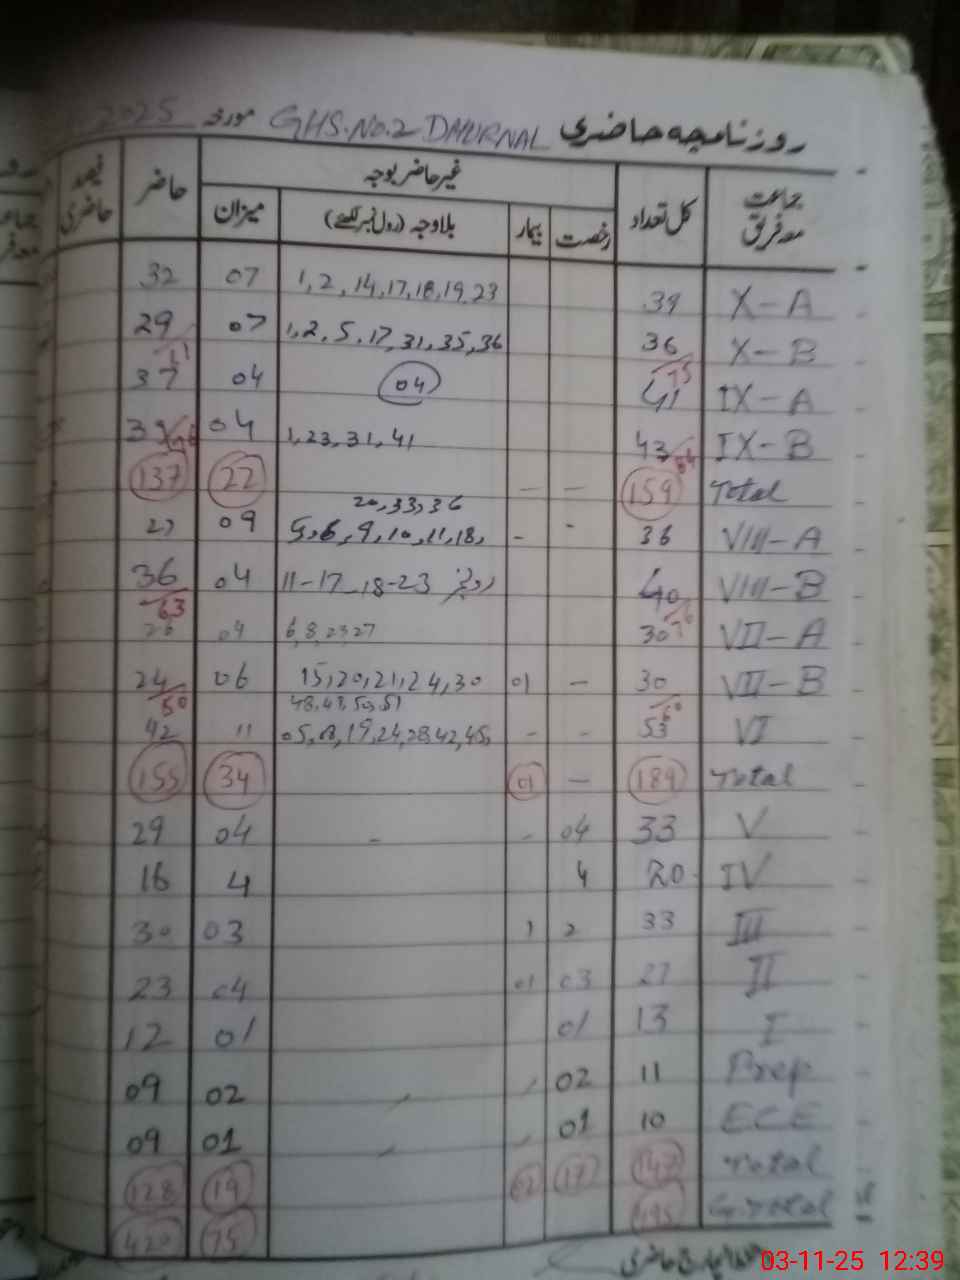 روزنامچہ حاضری GHS.No.2 DHURNAL مورخہ 2025
جماعت معہ فریق کل تعداد غیر حاضر بوجہ حاضر فیصد حاضری
رخصت بیمار بلاوجہ (رول نمبر لکھئے) میزان
X-A 39 1,2,14,17,18,19,23 07 32
X-B 36 1,2,5,17,31,35,36 07 29
75
IX-A 41 04 04 37
IX-B 43 1,23,31,41 04
84
Total 159 — — 22 137
20,33,36
VIII-A 36 - 5,6,9,10,11,18, 09 27
VIII-B 40 11-17-18-23 04 36
76 63
VII-A 30 6,8,23,27 04 26
VII-B 30 — 01 15,20,21,24,30 06 24
60 50
48,50,51
VI 53 - - 05,08,19,24,28,42,45, 11 42
Total 189 — 01 34 155
V 33 04 - - 04 29
IV 20 4 4 16
III 33 2 1 03 30
II 27 03 01 04 23
I 13 01 01 12
Prep 11 02 02 09
ECE 10 01 01 09
Total 147 17 02 19 128
G.Total 495 75 420
03-11-25 12:39